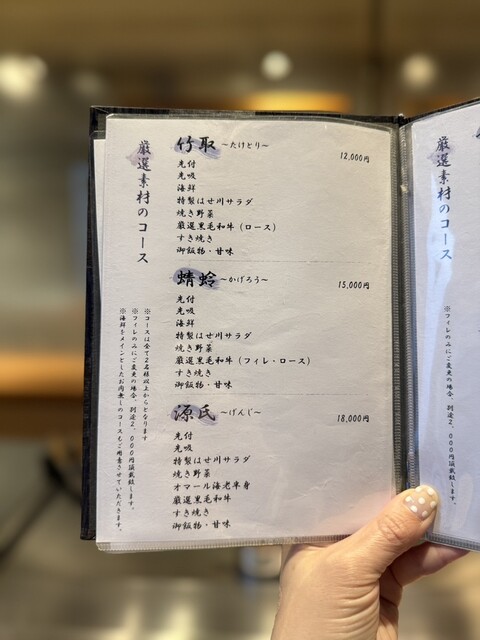 厳選素材のコース
竹取 ～たけとり～ 12,000円
先付
先吸
海鮮
特製はせ川サラダ
焼き野菜
厳選黒毛和牛(ロース)
すき焼き
御飯物・甘味
蜻蛉 ～かげろう～ 15,000円
先付
先吸
海鮮
特製はせ川サラダ
焼き野菜
厳選黒毛和牛(フィレ・ロース)
すき焼き
御飯物・甘味
源氏 ～げんじ～ 18,000円
先付
先吸
特製はせ川サラダ
焼き野菜
オマール海老半身
厳選黒毛和牛
すき焼き
御飯物・甘味
※コースは全て2名様以上からとなります
※フィレのみにご変更の場合、別途2,000円頂戴致します。
※海鮮をメインとしたお肉無しのコースもご用意させていただきます。
厳選素材のコース
※フィレのみにご変更の場合、別途2,000円頂戴致します。